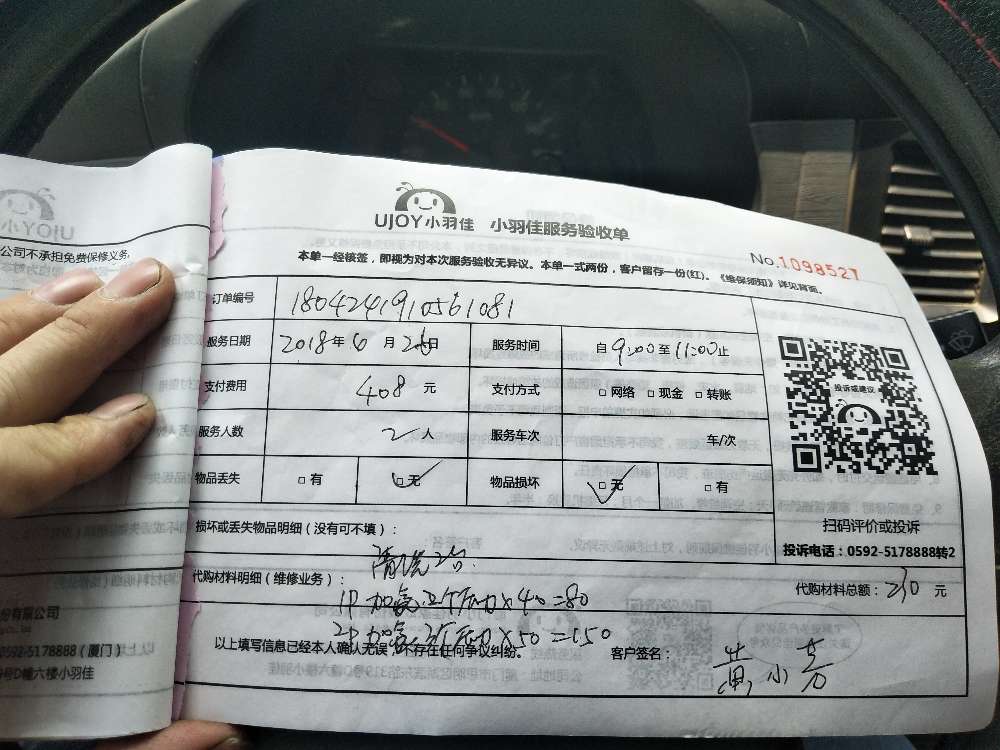 UJOY小羽佳 小羽佳服务验收单
No.1098527
本单一经核签，即视为对本次服务验收无异议。本单一式两份，客户留存一份(红)。《维保须知》详见背面。
订单编号 1804241910561081
服务日期 2018年6月26日 服务时间 自9:00至11:00止
支付费用 408元 支付方式 □网络 □现金 □转账
服务人数 2人 服务车次 车/次
物品丢失 □有 □无 物品损坏 □无 □有
损坏或丢失物品明细（没有可不填）：
清洗2台
代购材料明细（维修业务）： 代购材料总额：230元
1P加氨2个压力×40=80
2P加氨3个压力×50=150
以上填写信息已经本人确认无误，不存在任何争议纠纷。 客户签名：黄小芳
投诉或建议
扫码评价或投诉
投诉电话：0592-5178888转2
公司不承担免费保修义务,
份有限公司
0592-5178888（厦门）
9号D幢六楼小羽佳